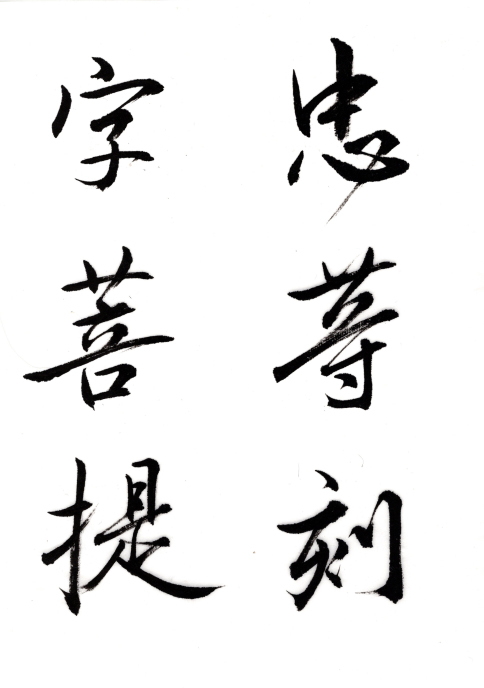 忠等刻
字菩提